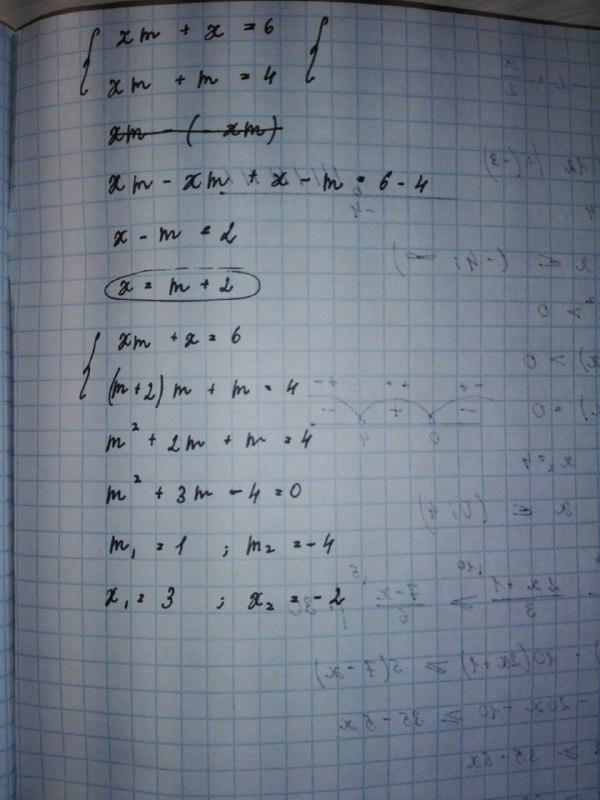 { xm + x = 6 {
xm + m = 4
xm - (-xm)
xm - xm + x - m = 6 - 4
x - m = 2
x = m + 2
{ xm + x = 6
(m+2)m + m = 4
m² + 2m + m = 4
m² + 3m - 4 = 0
m₁ = 1 ; m₂ = -4
x₁ = 3 ; x₂ = -2